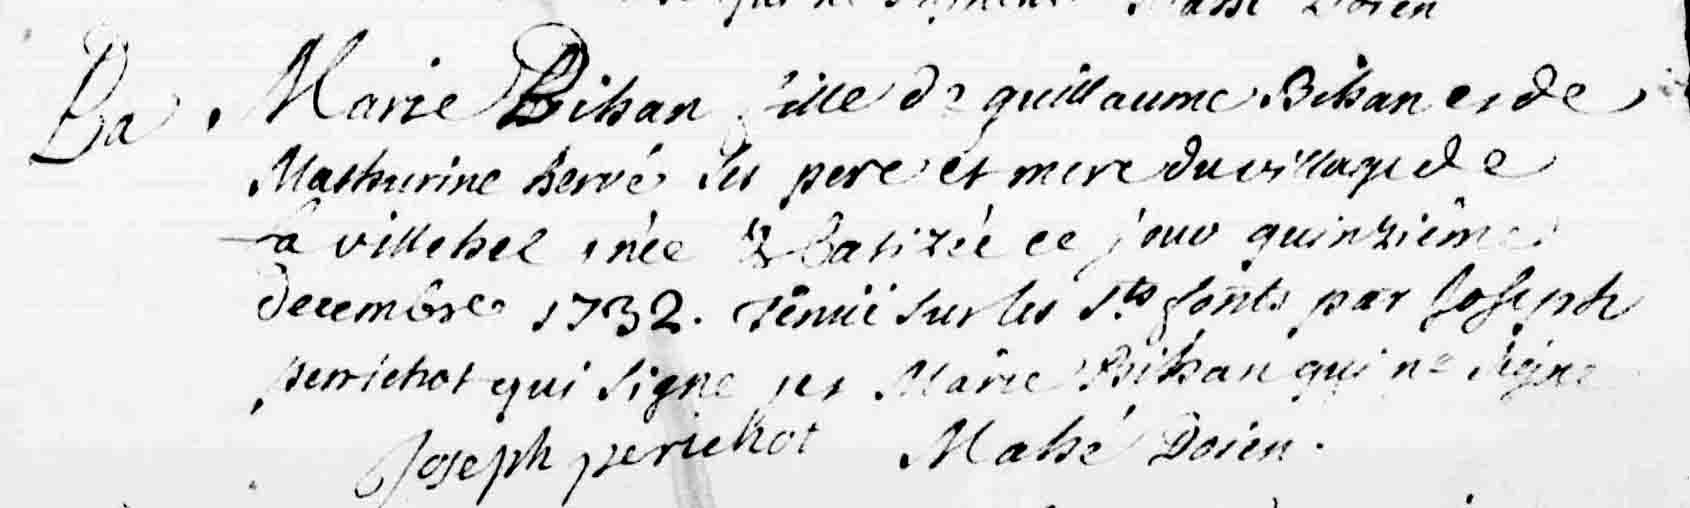 qui ne signent Mahé Doien
Ba. Marie Bihan fille de guillaume Bihan et de
Mathurine hervé ses pere et mere du village de
la villehel née & batizée ce jour quinziême
decembre 1732. Tenüe sur les Sts fonts par Joseph
perrichot qui signe et Marie Bihan qui ne signe
Joseph perichot Mahé Doien.